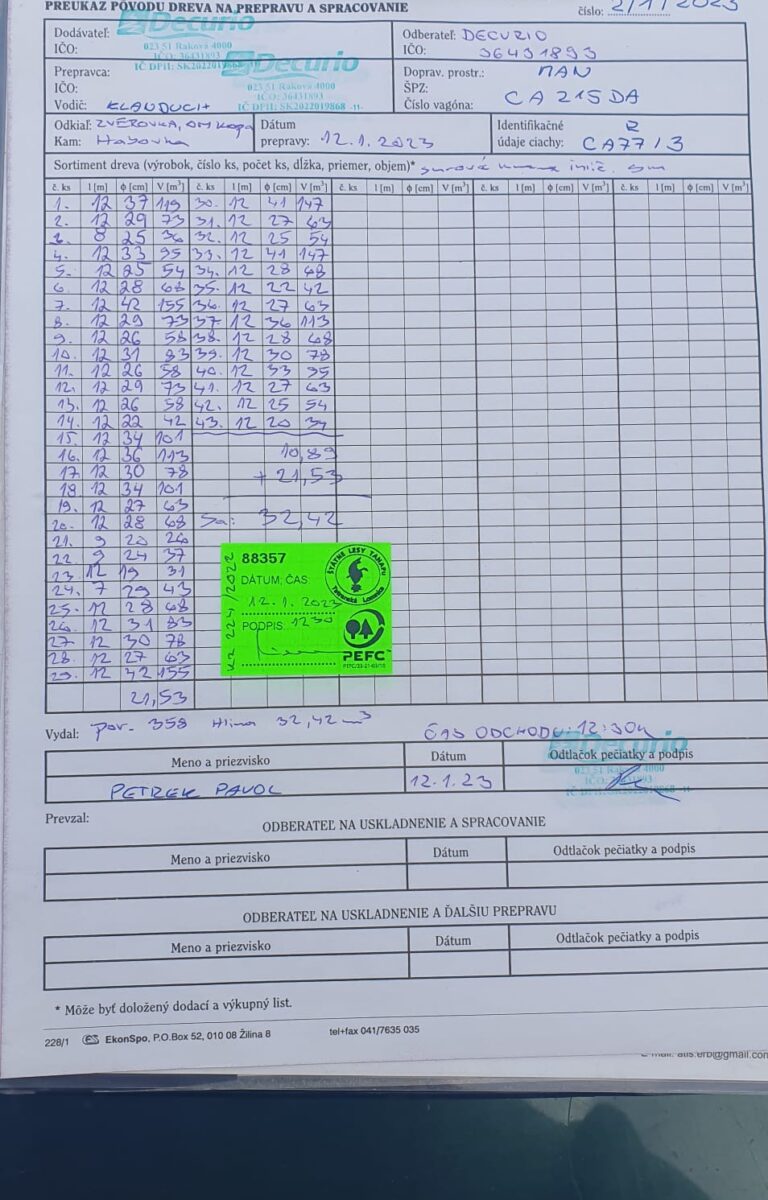 PREUKAZ PÔVODU DREVA NA PREPRAVU A SPRACOVANIE
číslo: 2/1/2023
Dodávateľ:
IČO:
Decurio
023 51 Raková 4000
IČO: 36431893
IČ DPH: SK2022019868
Odberateľ: DECURIO
IČO: 36431893
Prepravca:
IČO:
Vodič:
Decurio
023 51 Raková 4000
IČO: 36431893
IČ DPH: SK2022019868 -11-
Doprav. prostr.: MAN
ŠPZ:
Číslo vagóna: CA 215 DA
Odkiaľ: ZVEROVKA,
Kam: Habovka
Dátum
prepravy: 12.1.2023
Identifikačné
údaje ciachy: CA77/3
Sortiment dreva (výrobok, číslo ks, počet ks, dĺžka, priemer, objem)*
č. ks l [m] ϕ [cm] V [m³] č. ks l [m] ϕ [cm] V [m³] č. ks l [m] ϕ [cm] V [m³] č. ks l [m] ϕ [cm] V [m³] č. ks l [m] ϕ [cm] V [m³]
1. 12 37 119 30. 12 41 147
2. 12 29 73 31. 12 27 63
3. 8 25 36 32. 12 25 54
4. 12 33 95 33. 12 41 147
5. 12 25 54 34. 12 28 68
6. 12 28 68 35. 12 22 42
7. 12 42 155 36. 12 27 63
8. 12 29 73 37 12 36 113
9. 12 26 58 38. 12 28 68
10. 12 31 83 39. 12 30 78
11. 12 26 58 40. 12 33 95
12. 12 29 73 41. 12 27 63
13. 12 26 58 42. 12 25 54
14. 12 22 42 43. 12 20 34
15. 12 34 101
16. 12 36 113 10,89
17 12 30 78 + 21,53
18 12 34 101
19. 12 27 63
20. 12 28 68 Sa: 32,42
21. 9 20 26
22 9 24 37
23 12 19 31
24. 7 29 43
25. 12 28 68
26. 12 31 83
27 12 30 78
28. 12 27 63
29. 12 42 155
21,53
88357
DÁTUM, ČAS
12.1.2023
PODPIS 1230
224/2022
ŠTÁTNE LESY TANAPU
Tatranská Lomnica
PEFC
Vydal: por. 358 32,42 m³
ČAS ODCHODU: 12:30h
Meno a priezvisko Dátum Odtlačok pečiatky a podpis
PETREK PAVOL 12.1.23
Decurio
023 51 Raková 4000
Prevzal:
ODBERATEĽ NA USKLADNENIE A SPRACOVANIE
Meno a priezvisko Dátum Odtlačok pečiatky a podpis
ODBERATEĽ NA USKLADNENIE A ĎALŠIU PREPRAVU
Meno a priezvisko Dátum Odtlačok pečiatky a podpis
* Môže byť doložený dodací a výkupný list.
228/1 EkonSpo, P.O.Box 52, 010 08 Žilina 8 tel+fax 041/7635 035